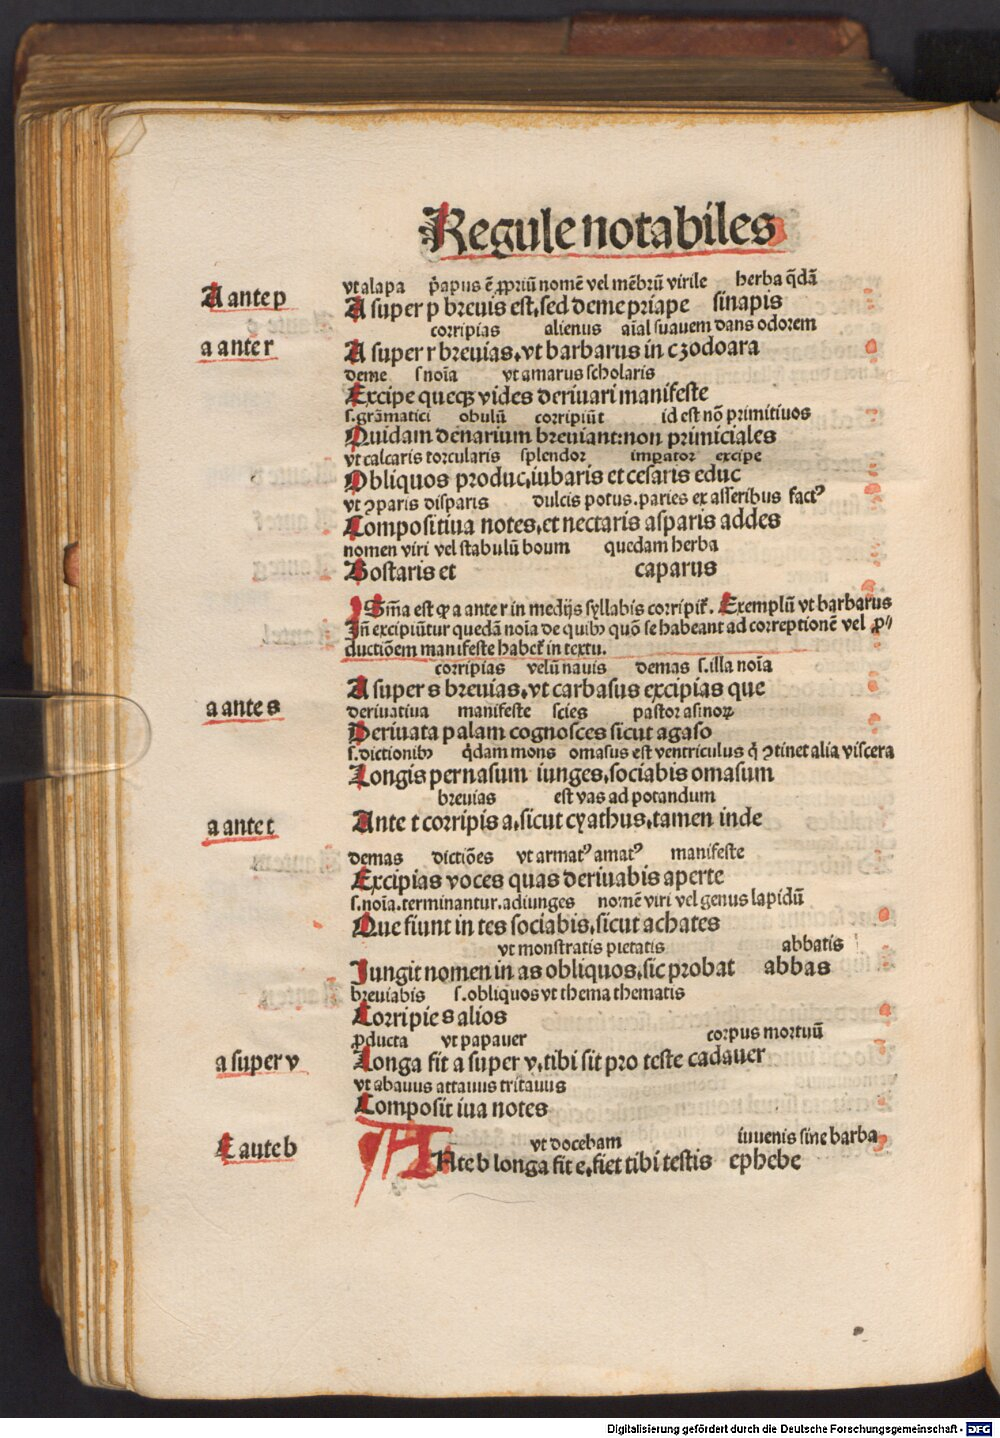 Regule notabiles
vt alapa p̄apus ē ꝓpriū nomē vel mēbrū virile herba q̄dā
A ante p
A super p breuis est, sed deme priape sinapis
corripias alienus aīal suauem dans odorem
a ante r
A super r breuias, vt barbarus in czodoara
deme s noīa vt amarus scholaris
Excipe queqꝫ vides deriuari manifeste
s. grāmatici obulū corripiūt id est nō primitiuos
Quidam denarium breuiant: non primiciales
vt calcaris torcularis splendor imꝑator excipe
Obliquos produc, iubaris et cesaris educ
vt ꝯparis disparis dulcis potus. paries ex asseribus factꝰ
Compositiua notes, et nectaris asparis addes
nomen viri vel stabulū boum quedam herba
Bostaris et caparus
Sm̄a est ꝙ a ante r in medijs syllabis corripit̄. Exemplū vt barbarus
Iñ excipiūtur quedā noīa de quibꝰ quō se habeant ad correptionē vel ꝓ⸗
ductiōem manifeste habet̄ in textu.
corripias velū nauis demas s. illa noīa
A super s breuias, vt carbasus excipias que
a ante s
deriuatiua manifeste scies pastor asinoꝝ
Deriuata palam cognosces sicut agaso
s. dictionibꝰ q̄dam mons omasus est ventriculus q̄ ꝯtinet alia viscera
Longis pernasum iunges, sociabis omasum
breuias est vas ad potandum
a ante t
Ante t corripis a, sicut cyathus, tamen inde
demas dictiōes vt armatꝰ amatꝰ manifeste
Excipias voces quas deriuabis aperte
s. noīa. terminantur. adiunges nomē viri vel genus lapidū
Que fiunt in tes sociabis, sicut achates
vt monstratis pietatis abbatis
Jungit nomen in as obliquos, sic probat abbas
breuiabis s. obliquos vt thema thematis
Corripies alios
ꝓducta vt papauer corpus mortuū
a super v
Longa fit a super v, tibi sit pro teste cadauer
vt abauus attauus tritauus
Composit iua notes
vt docebam iuuenis sine barba
E aute b
ANte b longa fit e, fiet tibi testis ephebe
Digitalisierung gefördert durch die Deutsche Forschungsgemeinschaft - DFG